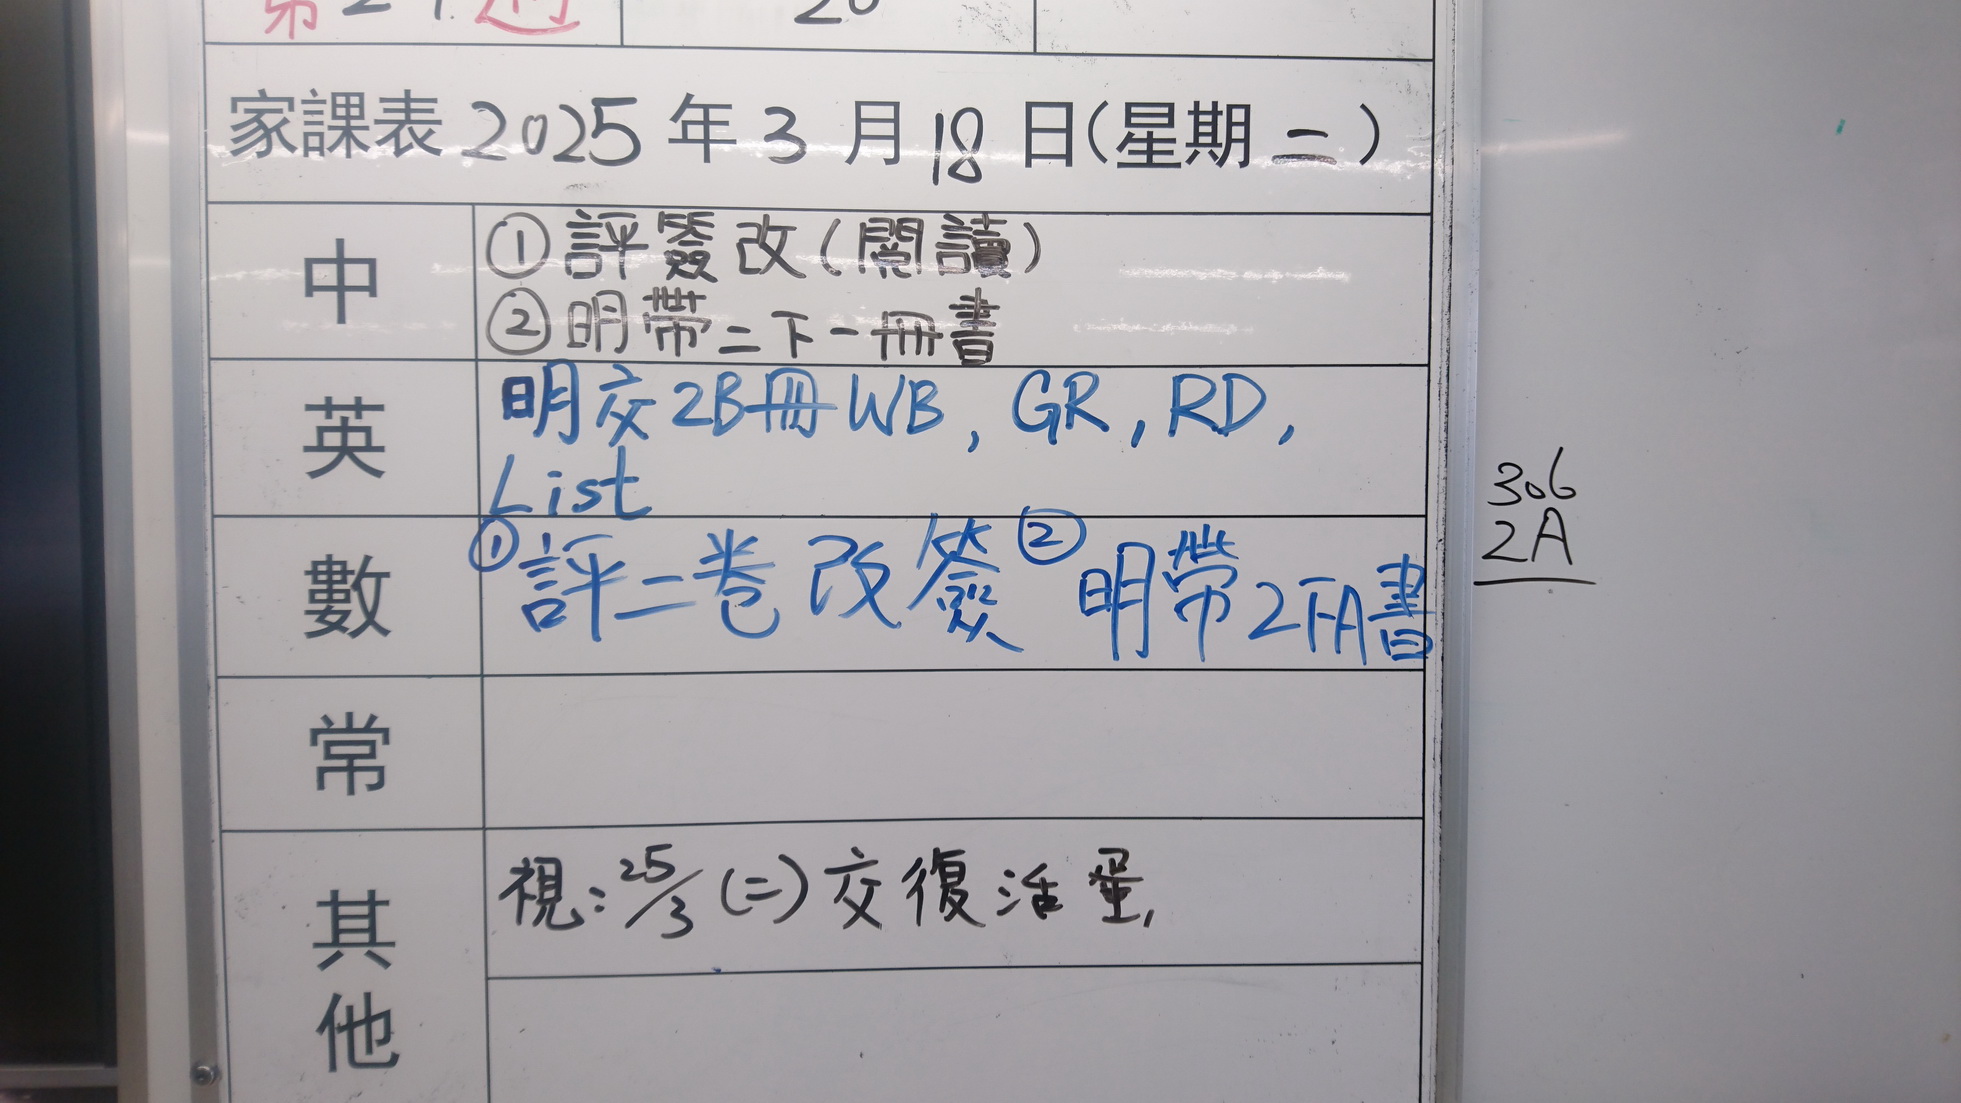 第 週
家課表 2025 年 3 月 18 日(星期 二 )
中
①評簽改(閱讀)
②明帶二下一冊書
英
明交2B冊WB, GR, RD,
List
數
①評二卷改簽 ②明帶2下A書
常
其他
視:25/3(二)交復活蛋
306
2A